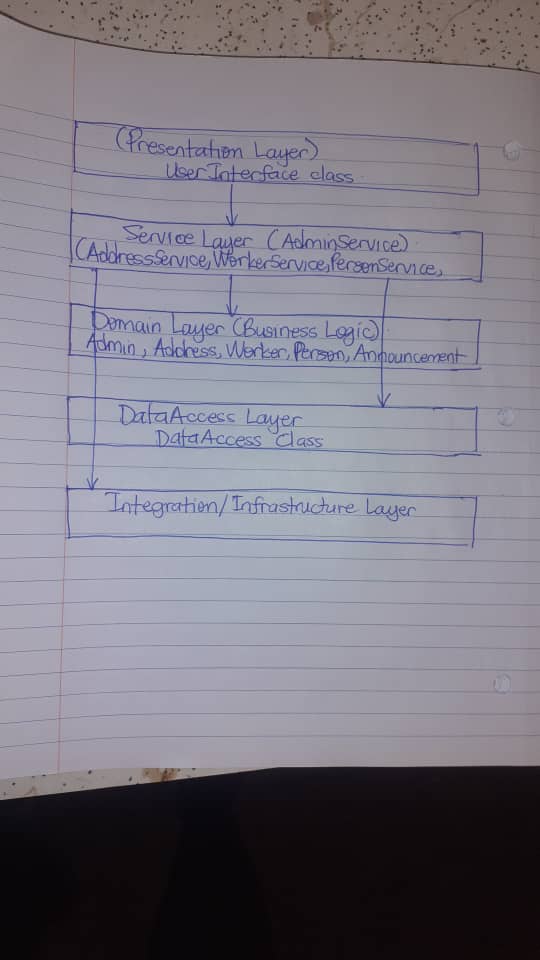 (Presentation Layer)
UserInterface class.
Service Layer (AdminService).
(AddressService, WorkerService, PersonService,
Domain Layer (Business Logic)
Admin, Address, Worker, Person, Announcement
DataAccess Layer
DataAccess Class
Integration/Infrastructure Layer